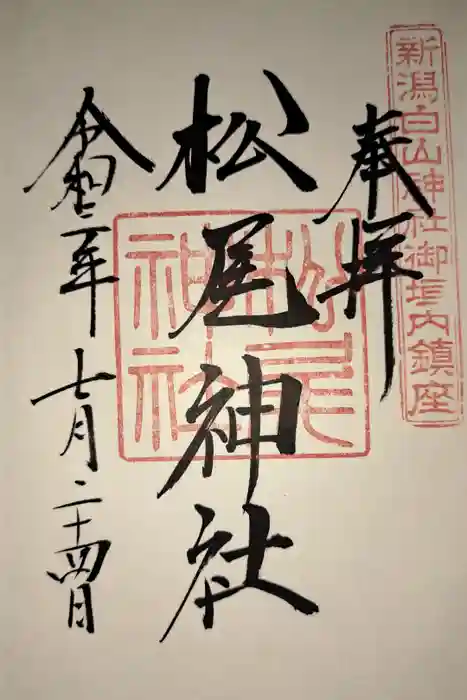 新潟白山神社御垣内鎮座
奉拝
松尾神社
松尾神社
令和二年七月二十四日